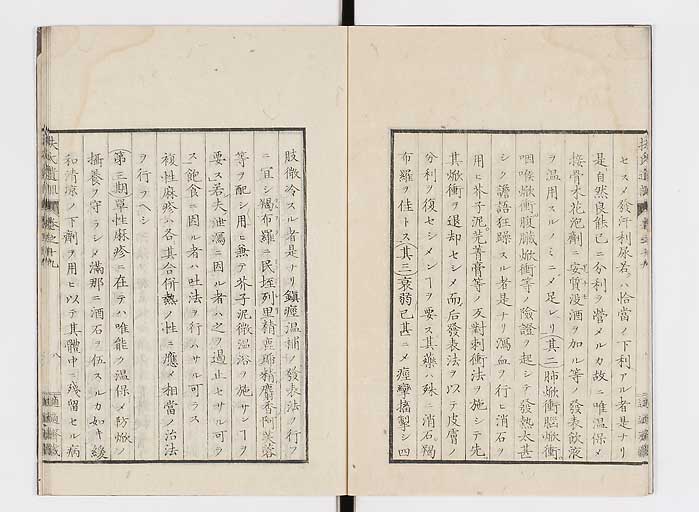 セスメ發汗利尿若クハ恰當ノ下利アル者是ナリ
是自然良能已ニ分利ヲ營メルカ故ニ唯温保メ
接骨木花泡劑ニ安質没酒ヲ加ル等ノ發表飲液
ヲ温用スルノミニメ足レリ其二肺焮衝腦焮衝
咽喉焮衝腹臓焮衝等ノ險證ヲ起シテ發熱太甚
シク譫語狂躁スル者是ナリ瀉血ヲ行ヒ消石ヲ
用ヒ芥子泥芫菁膏等ノ反對刺衝法ヲ施シテ先
其焮衝ヲ退却セシメ而後發表法ヲ以テ皮膚ノ
分利ヲ復セシメンヿヲ要ス其藥ハ殊ニ消石羯
布羅ヲ佳トス其三衰弱已甚ニメ瘂攣搐掣シ四
肢微冷スル者是ナリ鎮痙温補ノ發表法ヲ行フ
ニ宜シ羯布羅ニ民垤列里精麝香阿芙蓉
等ヲ配シ用ヒ無テ芥子泥微温浴ヲ施サンヿヲ
要ス若夫泄瀉ニ因ル者ハ之ヲ遏止セサル可ラ
ス飽食ニ因ル者ハ吐法ヲ行ハサル可ラス
複性麻疹ハ各其合併熱ノ性ニ應メ相當ノ治法
ヲ行ラヘシ
第三期單性麻疹ニ在テハ唯能ク温保メ防焮ノ
攝養ヲ守ラシメ滿那ニ酒石ヲ伍スルカ如キ緩
和清凉ノ下劑ヲ用ヒ以テ其體中ニ殘留セル病